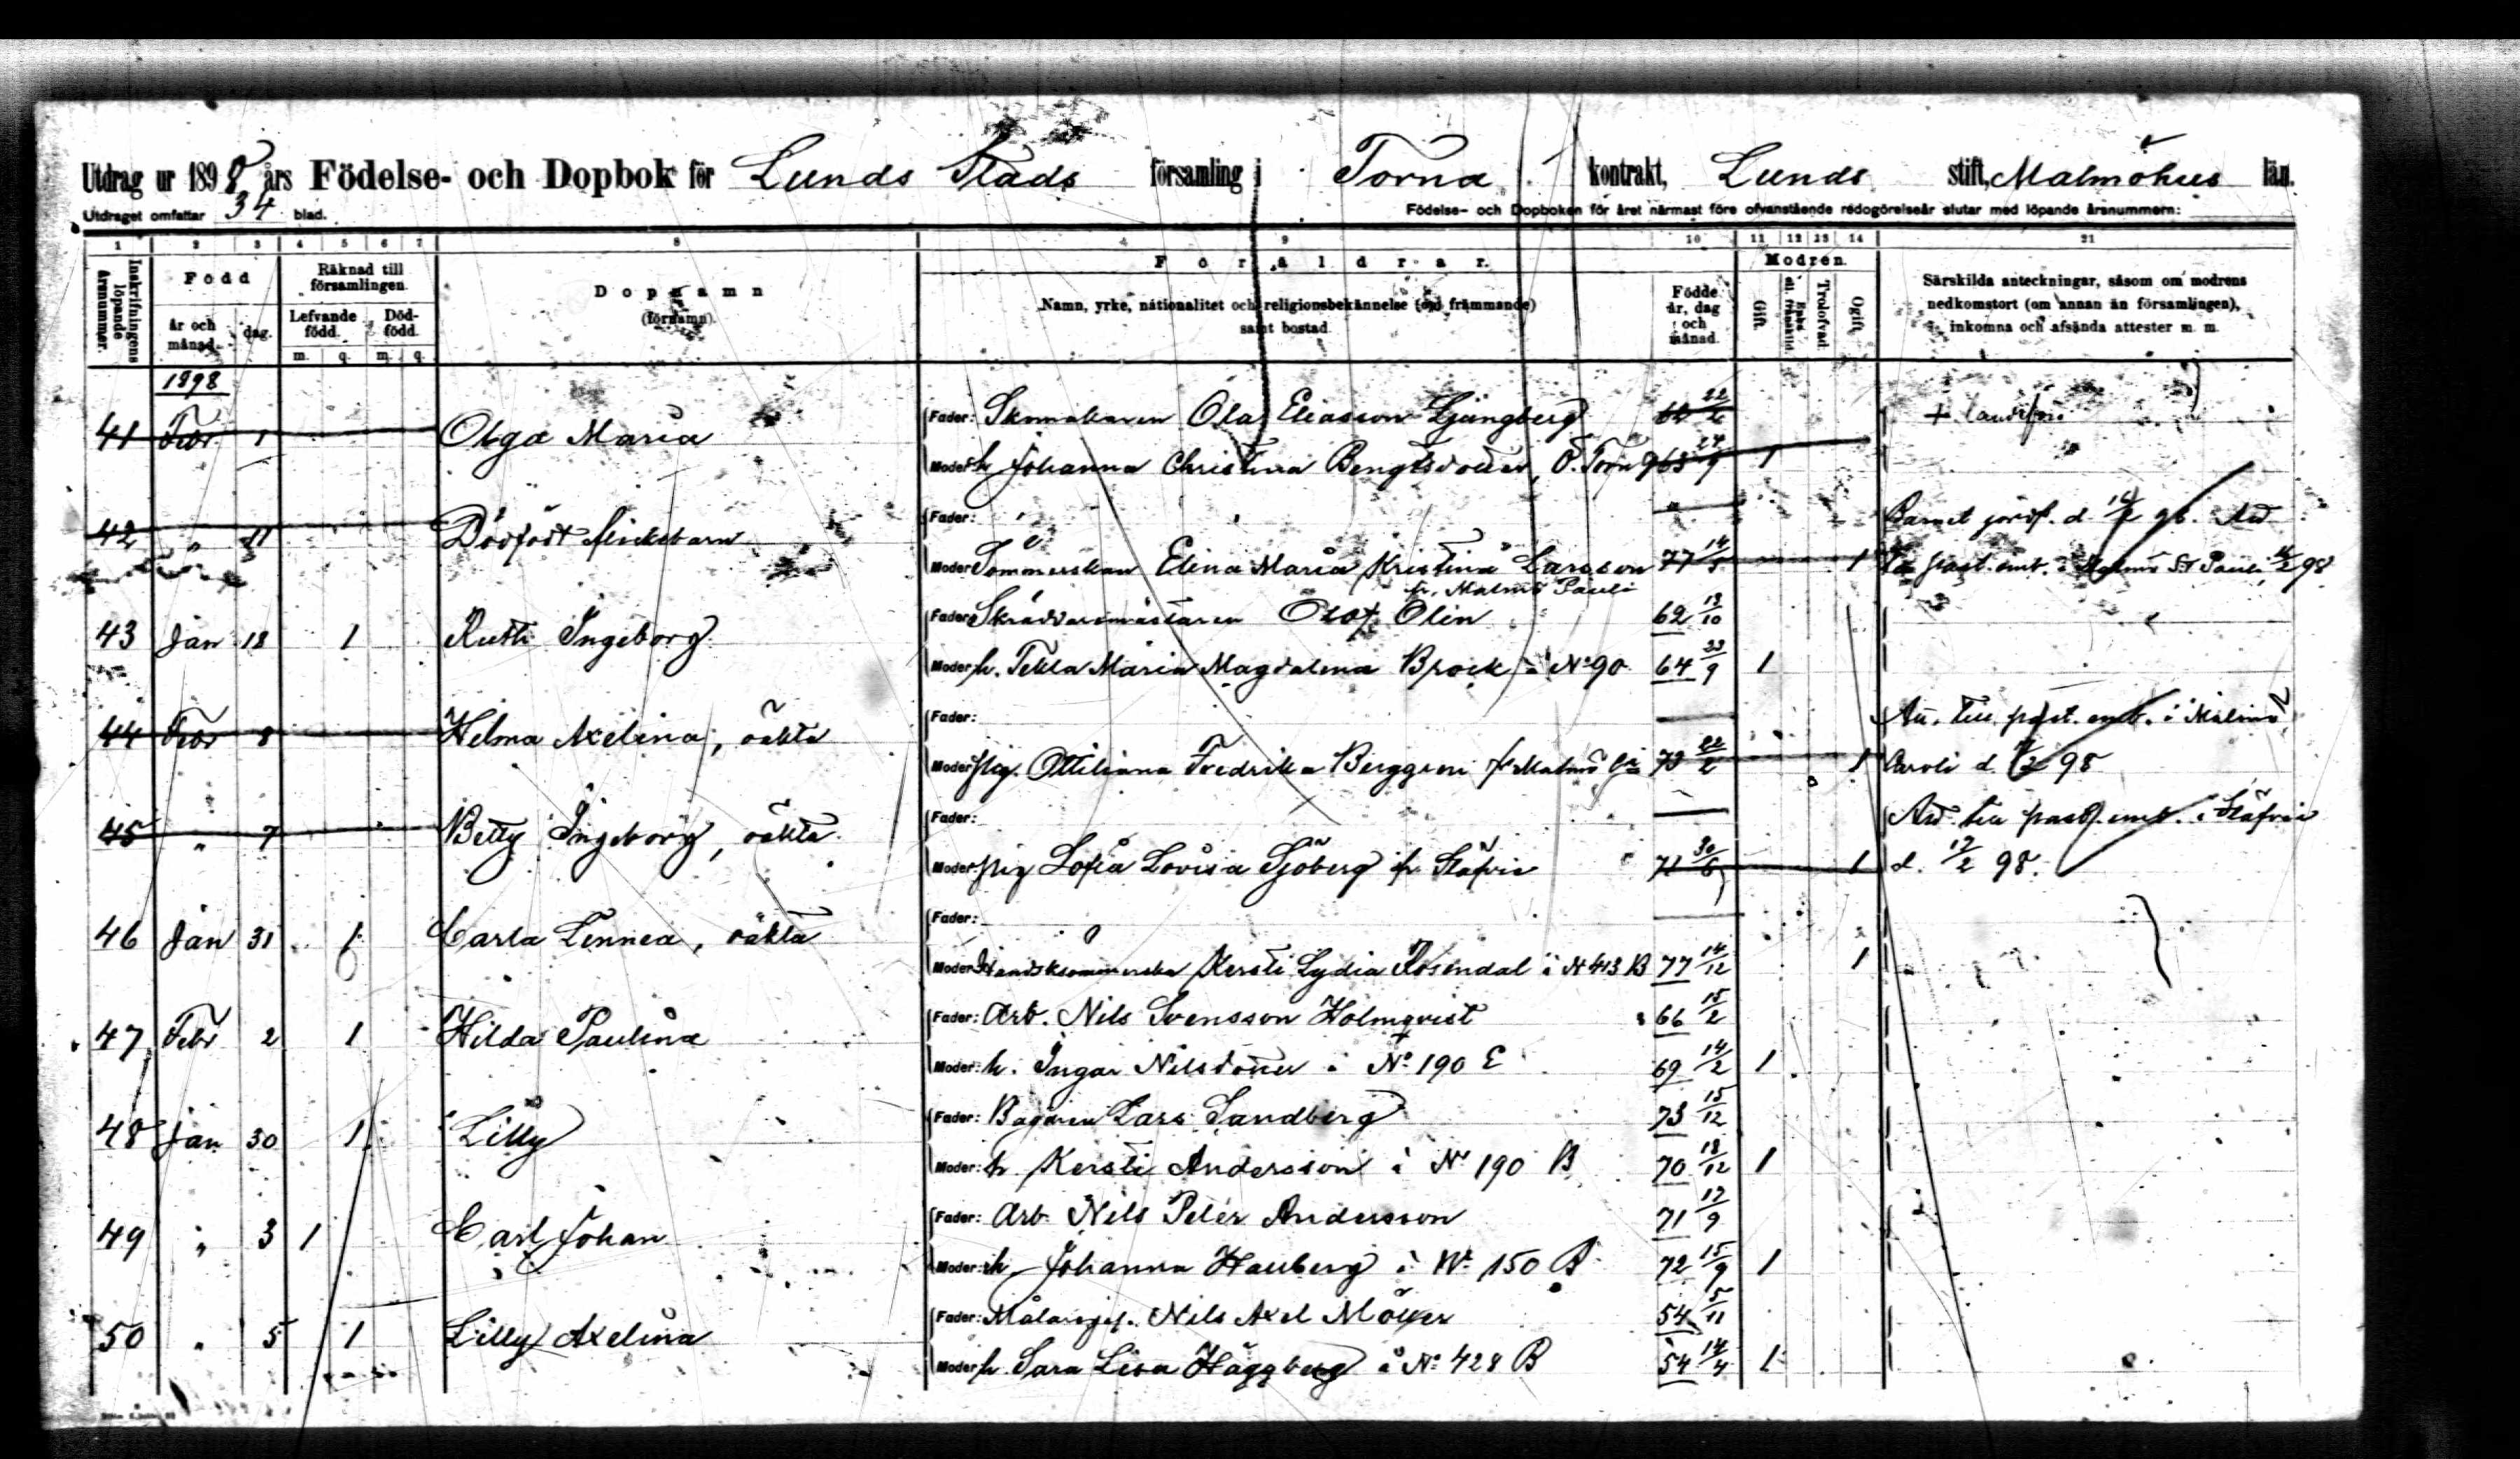 Utdrag ur 1898 års Födelse- och Dopbok för Lunds Stads församling i Torna kontrakt, Lunds stift, Malmöhus län.
Utdraget omfattar 34 blad.
Födelse- och Dopboken för året närmast före ofvanstående redogörelseår slutar med löpande årsnummern:
1 2 3 4 5 6 7 8 9 10 11 12 13 14 21
Inskrifningens löpande årsnummer.
Född
år och månad.
dag.
Räknad till församlingen.
Lefvande född.
Död-född.
m. q. m. q.
Dopnamn
(förnamn).
Föräldrar.
Namn, yrke, nationalitet och religionsbekännelse (om främmande)
samt bostad.
Födde år, dag och månad.
Modren.
Gift.
Enka el. frånskild.
Trolofvad.
Ogift.
Särskilda anteckningar, såsom om modrens
nedkomstort (om annan än församlingen),
inkomna och afsända attester m. m.
1898
Fader: Skomakaren Ola Eliasson Ljungberg 64 22/2
41 Febr 1 Olga Maria
Moder: h Johanna Christina Bengtsdotter, Ö. Torn 9 63 24/9 1
Fader: —
42 " 11 Dödfödt flickebarn
Barnet jordf. d.
Moder: Sömmerskan Elina Maria Kristina Larsson 77 14/5 1
fr. Malmö Pauli
past. emb. i Malmö S:t Pauli 98
Fader: Skräddaremästaren Olof Olin 62 13/10
43 Jan 18 1 Ruth Ingeborg
Moder: h. Tekla Maria Magdalena Brock i No 90 64 23/9 1
Fader: —
44 Febr 8 Helma Axelina, oäkta
till past. emb. i Malmö
Moder: pig. Ottiliana Fredrika Berggren fr Malmö 73 22/2 1
Caroli d. 98
Fader: —
45 " 7 Betty Ingeborg, oäkta
till past. emb. i Stäfvie
Moder: pig Sofia Lovisa Sjöberg fr. Stäfvie 71 30/6 1
d. 17/2 98.
Fader: —
46 Jan 31 1 Carla Linnea, oäkta
Moder: Handsksömmerska Kersti Lydia Rosendal i N 413 B 77 14/12 1
Fader: Arb. Nils Svensson Holmqvist 66 15/2
47 Febr 2 1 Hilda Paulina
Moder: h. Ingar Nilsdotter i No 190 E 69 14/2 1
Fader: Bagaren Lars Sandberg 73 15/12
48 Jan 30 1 Lilly
Moder: h Kersti Andersson i No 190 B 70 18/12 1
Fader: Arb Nils Peter Andersson 71 17/9
49 " 3 1 Carl Johan
Moder: h Johanna Hauberg i No 150 B 72 15/9 1
Fader: Målareges. Nils Axel Möller 54 5/11
50 " 5 1 Lilly Axelina
Moder: h. Sara Lisa Häggberg i No 428 B 54 14/4 1